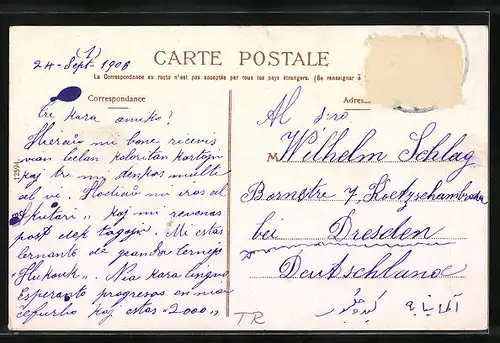 (1)
24-Sept- 1908
CARTE POSTALE
La Correspondance au recto n'est pas acceptée par tous les pays étrangers. (Se renseigner à
Correspondance
Adres
Tre kara amiko!
Hieraŭ mi bone ricevis
vian belan koloritan kartojn
kaj tre mi dankas multe
al vi. Hodiaŭ mi iros al
"Skutari" kaj mi revenos
post dek tagoj. Mi estas
lernanto de granda lernejo
Nia kara lingvo
Esperanto progresas en nia
ĉefurbo kaj estas "2000"
12594
Al S-ro
M Wilhelm Schlag
Bornstre 7, Koetzschambroda
bei Dresden
Deutschland
TR